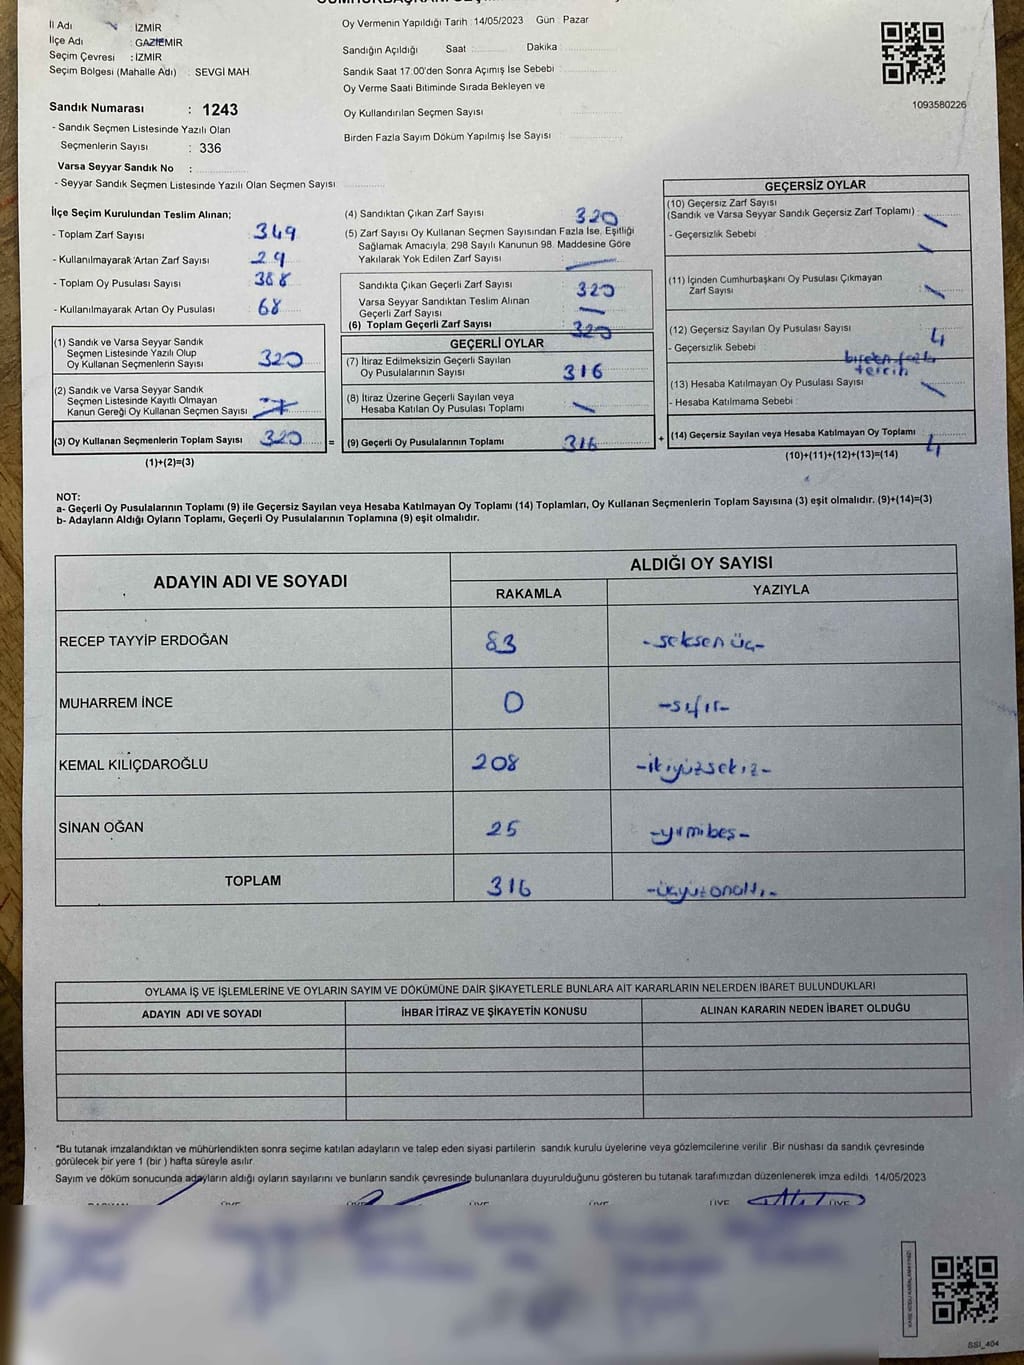 İl Adı : İZMİR
İlçe Adı : GAZİEMİR
Seçim Çevresi : İZMİR
Seçim Bölgesi (Mahalle Adı) : SEVGİ MAH
Sandık Numarası : 1243
- Sandık Seçmen Listesinde Yazılı Olan
Seçmenlerin Sayısı : 336
Varsa Seyyar Sandık No :
- Seyyar Sandık Seçmen Listesinde Yazılı Olan Seçmen Sayısı
Oy Vermenin Yapıldığı Tarih : 14/05/2023 Gün : Pazar
Sandığın Açıldığı Saat : Dakika :
Sandık Saat 17:00'den Sonra Açımış İse Sebebi :
Oy Verme Saati Bitiminde Sırada Bekleyen ve
Oy Kullandırılan Seçmen Sayısı :
Birden Fazla Sayım Döküm Yapılmış İse Sayısı :
1093580226
İlçe Seçim Kurulundan Teslim Alınan;
- Toplam Zarf Sayısı : 349
- Kullanılmayarak Artan Zarf Sayısı : 29
- Toplam Oy Pusulası Sayısı : 388
- Kullanılmayarak Artan Oy Pusulası : 68
(1) Sandık ve Varsa Seyyar Sandık
Seçmen Listesinde Yazılı Olup
Oy Kullanan Seçmenlerin Sayısı : 320
(2) Sandık ve Varsa Seyyar Sandık
Seçmen Listesinde Kayıtlı Olmayan
Kanun Gereği Oy Kullanan Seçmen Sayısı :
(3) Oy Kullanan Seçmenlerin Toplam Sayısı : 320 =
(1)+(2)=(3)
(4) Sandıktan Çıkan Zarf Sayısı : 320
(5) Zarf Sayısı Oy Kullanan Seçmen Sayısından Fazla İse, Eşitliği
Sağlamak Amacıyla, 298 Sayılı Kanunun 98. Maddesine Göre
Yakılarak Yok Edilen Zarf Sayısı :
Sandıkta Çıkan Geçerli Zarf Sayısı : 320
Varsa Seyyar Sandıktan Teslim Alınan
Geçerli Zarf Sayısı :
(6) Toplam Geçerli Zarf Sayısı : 320
GEÇERLİ OYLAR
(7) İtiraz Edilmeksizin Geçerli Sayılan
Oy Pusulalarının Sayısı : 316
(8) İtiraz Üzerine Geçerli Sayılan veya
Hesaba Katılan Oy Pusulası Toplamı :
(9) Geçerli Oy Pusulalarının Toplamı : 316 +
GEÇERSİZ OYLAR
(10) Geçersiz Zarf Sayısı
(Sandık ve Varsa Seyyar Sandık Geçersiz Zarf Toplamı) :
- Geçersizlik Sebebi :
(11) İçinden Cumhurbaşkanı Oy Pusulası Çıkmayan
Zarf Sayısı :
(12) Geçersiz Sayılan Oy Pusulası Sayısı : 4
- Geçersizlik Sebebi : birden fazla
tercih
(13) Hesaba Katılmayan Oy Pusulası Sayısı :
- Hesaba Katılmama Sebebi :
(14) Geçersiz Sayılan veya Hesaba Katılmayan Oy Toplamı : 4
(10)+(11)+(12)+(13)=(14)
NOT:
a- Geçerli Oy Pusulalarının Toplamı (9) ile Geçersiz Sayılan veya Hesaba Katılmayan Oy Toplamı (14) Toplamları, Oy Kullanan Seçmenlerin Toplam Sayısına (3) eşit olmalıdır. (9)+(14)=(3)
b- Adayların Aldığı Oyların Toplamı, Geçerli Oy Pusulalarının Toplamına (9) eşit olmalıdır.
ADAYIN ADI VE SOYADI
ALDIĞI OY SAYISI
RAKAMLA YAZIYLA
RECEP TAYYİP ERDOĞAN 83 -seksen üç-
MUHARREM İNCE 0 -sıfır-
KEMAL KILIÇDAROĞLU 208 -ikiyüzsekiz-
SİNAN OĞAN 25 -yirmibeş-
TOPLAM 316 -üçyüzonaltı-
OYLAMA İŞ VE İŞLEMLERİNE VE OYLARIN SAYIM VE DÖKÜMÜNE DAİR ŞİKAYETLERLE BUNLARA AİT KARARLARIN NELERDEN İBARET BULUNDUKLARI
ADAYIN ADI VE SOYADI İHBAR İTİRAZ VE ŞİKAYETİN KONUSU ALINAN KARARIN NEDEN İBARET OLDUĞU
*Bu tutanak imzalandıktan ve mühürlendikten sonra seçime katılan adayların ve talep eden siyasi partilerin sandık kurulu üyelerine veya gözlemcilerine verilir. Bir nüshası da sandık çevresinde
görülecek bir yere 1 (bir ) hafta süreyle asılır.
Sayım ve döküm sonucunda adayların aldığı oyların sayılarını ve bunların sandık çevresinde bulunanlara duyurulduğunu gösteren bu tutanak tarafımızdan düzenlenerek imza edildi 14/05/2023
ÜYE ÜYE ÜYE ÜYE ÜYE
SSI_404